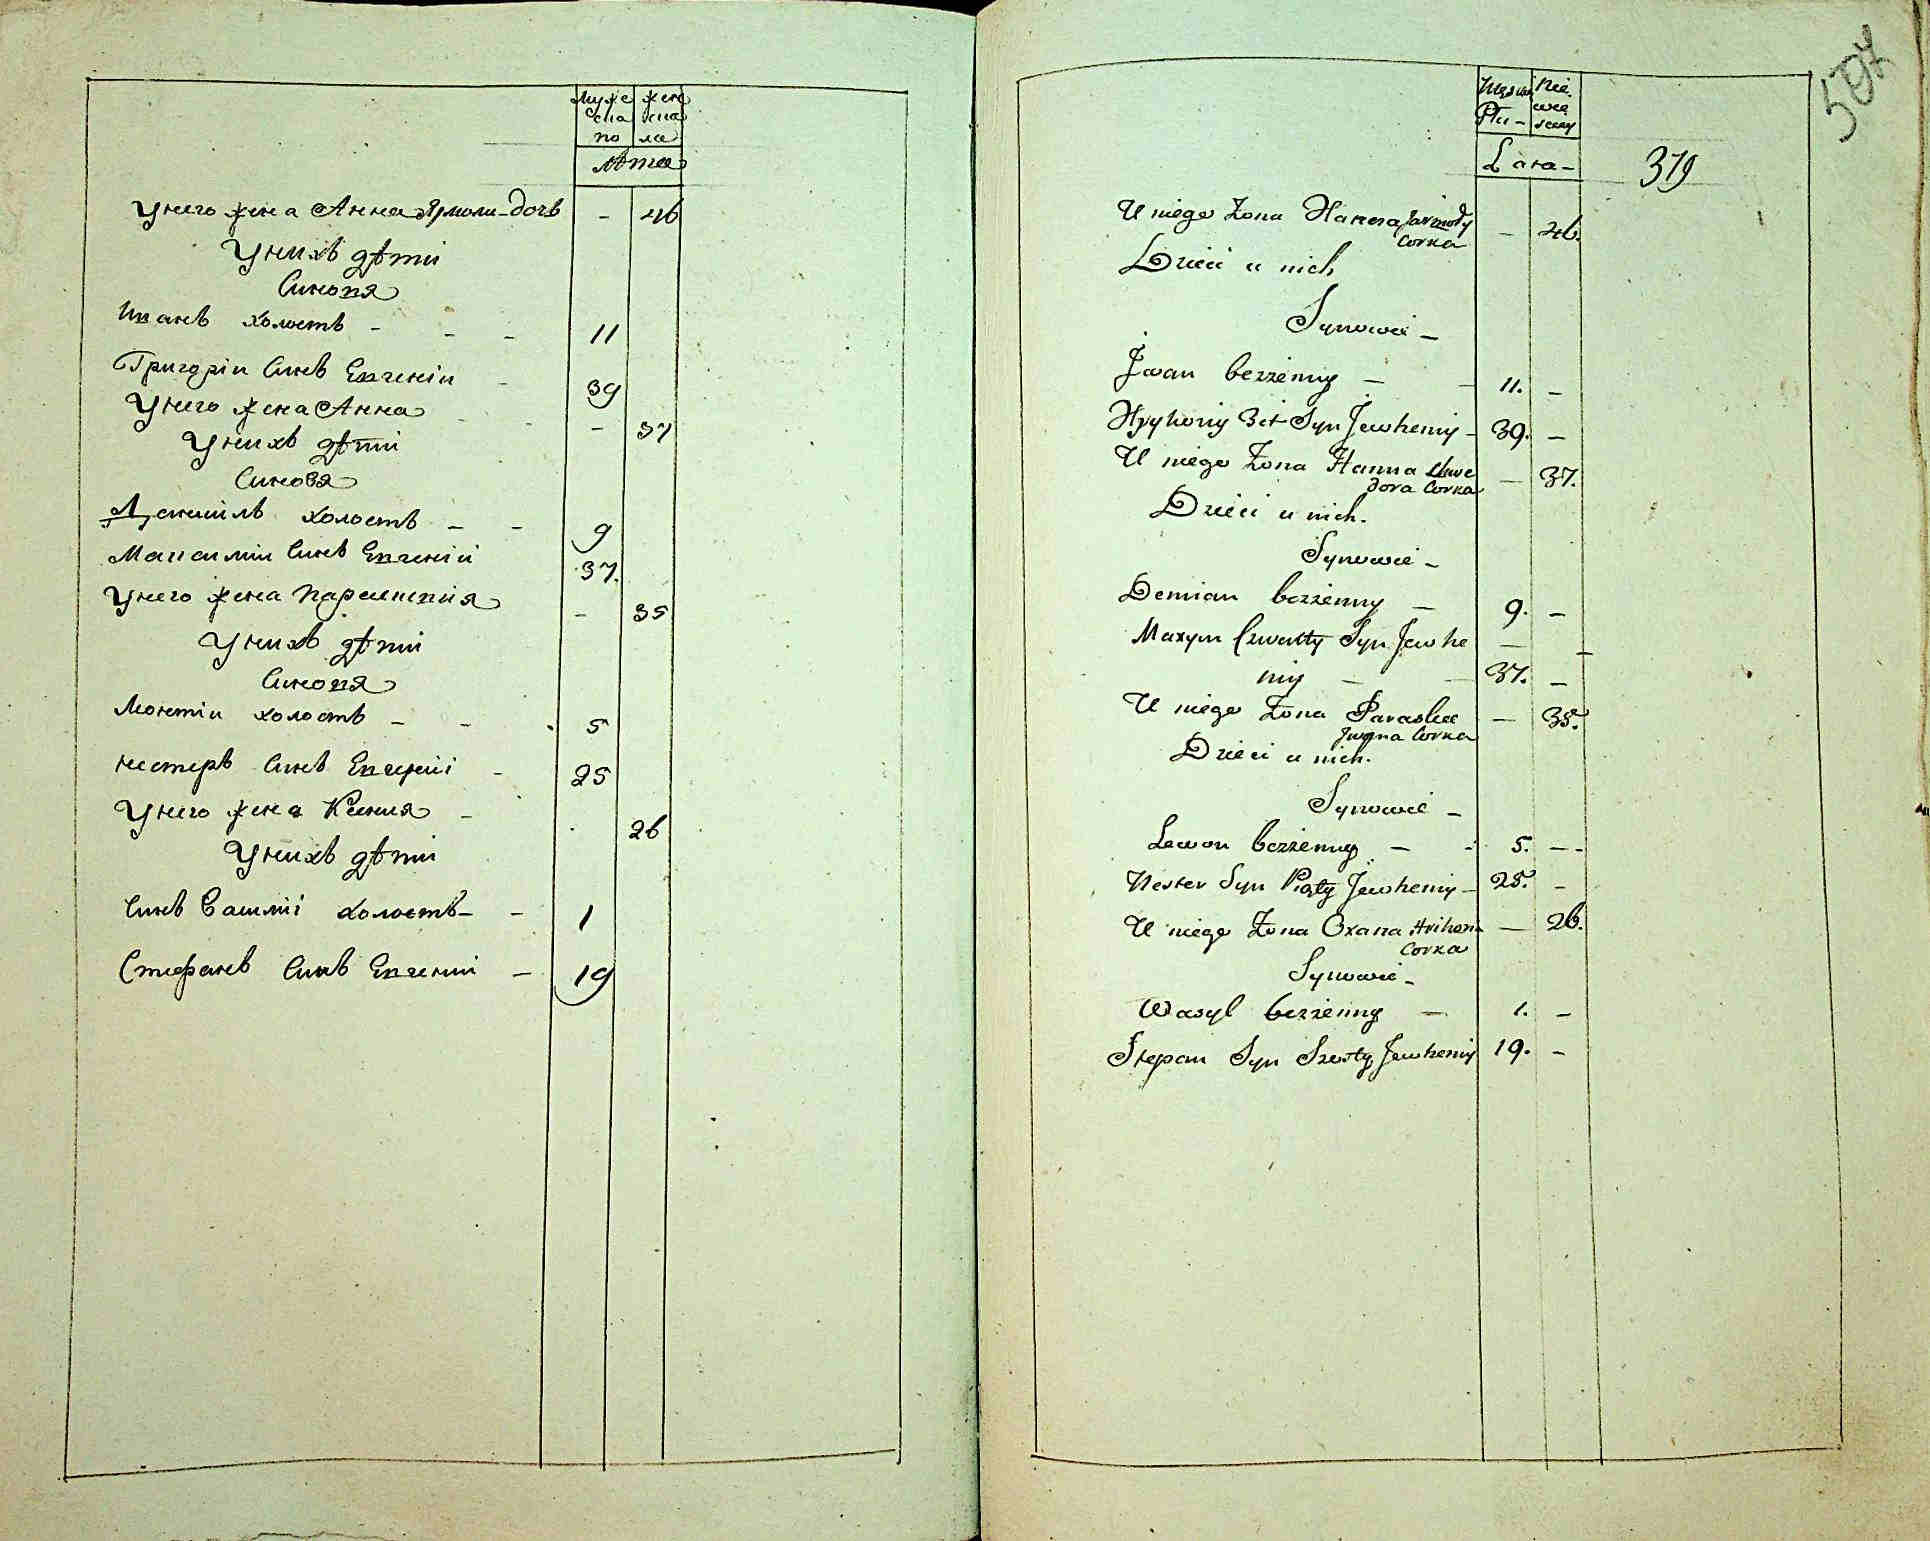 Муже жене
ска ска
по ла
Лѣта
У него жена Анна Ярмоли дочь - 46
У нихъ дѣти
Синовя
Иванъ холостъ - - - 11
Григоріи Синъ Евгеніи - 39
У него жена Анна - 37
У нихъ дѣти
Синовя
холостъ - - 9
Максимъ Синъ Евгеніи 37.
У него жена Параскивия - 35
У нихъ дѣти
Синовя
холостъ - - 5
Нестеръ Синъ Евгеніи - 25
У него жена Ксения - 26
У нихъ дѣти
Синъ Василіи холостъ - - 1
Стефанъ Синъ Евгеніи - 19
507
Męzkiej Nie
Płci - wie
sciey
Lata -
379
U niego Zona Hanna Jarmoły - 46.
Corka
Dzieci u nich
Synowie -
Jwan bezzenny - - 11. -
Hryhoriy 3ci Syn Jewheniy - 39. -
U niego Zona Hanna - 37.
dora Corka
Dzieci u nich.
Synowie -
Demian bezzenny - 9. -
Maxym Czwarty Syn Jewhe - -
niy - - 37. -
U niego Zona Paraska - 35.
Jwana Corka
Dzieci u nich.
Synowie -
Lewon bezzenny - - 5. - -
Nester Syn Piąty Jewheniy - 25. -
U niego Zona Oxana Hrihori - 26.
Corka
Synowie -
Wasyl bezzenny - 1. -
Stepan Syn Szosty Jewheniy 19. -